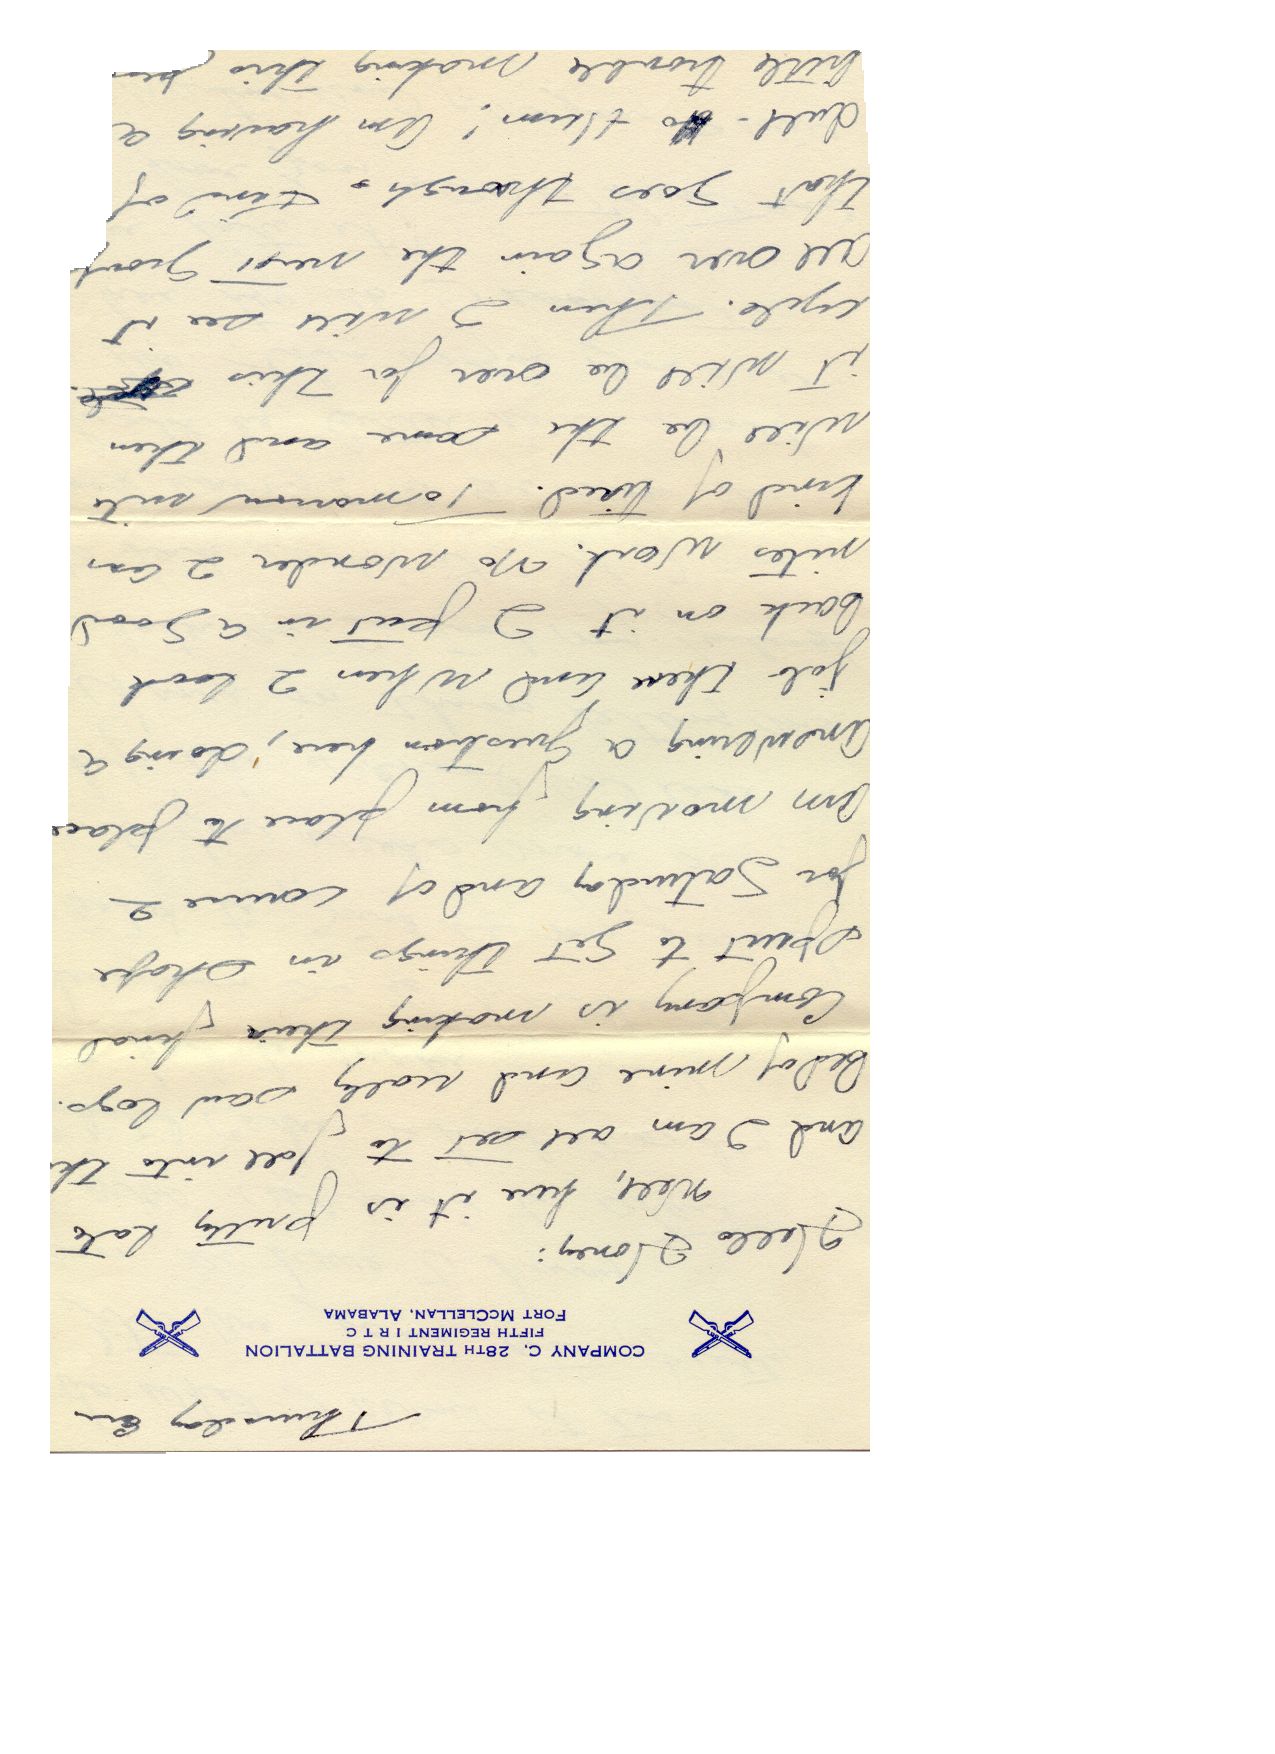 Thursday Eve
COMPANY C, 28TH TRAINING BATTALION
FIFTH REGIMENT I R T C
FORT MCCLELLAN, ALABAMA
Hello Honey:
Well, here it is pretty late
and I am all set to fall into the
Bed of mine and really saw logs.
Company is making their final
spurt to get things in shape
for Saturday and of course I
Am moving from place to place
Answering a question here, doing a
job there and when I look
back on it I put in a good
nites work. No wonder I am
kind of tired. Tomorrow nite
will be the same and then
it will be over for this
cycle. Then I will see it
all over again the next group
that goes through. Kind of
dull - to them! Am having a
little trouble making this pen